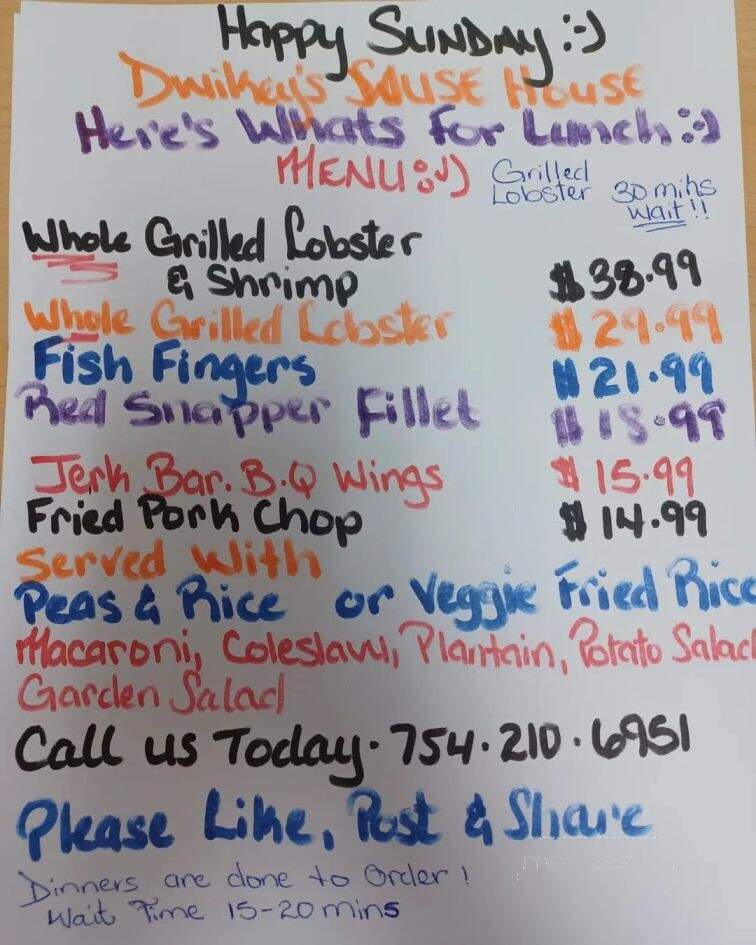 Happy SUNDAY :-)
Dwikey's SOUSE HOUSE
Here's Whats For Lunch :-)
MENU :)
Grilled
Lobster 30 mins
Wait!!
Whole Grilled Lobster
& Shrimp $38.99
Whole Grilled Lobster $29.99
Fish Fingers $21.99
Red Snapper Fillet $18.99
Jerk Bar.B.Q Wings $15.99
Fried Pork Chop $14.99
Served With
Peas & Rice or Veggie Fried Rice
Macaroni, Coleslaw, Plaintain, Potato Salad
Garden Salad
Call us Today. 754.210.6951
Please Like, Post & Share
Dinners are done to Order!
Wait Time 15-20 mins